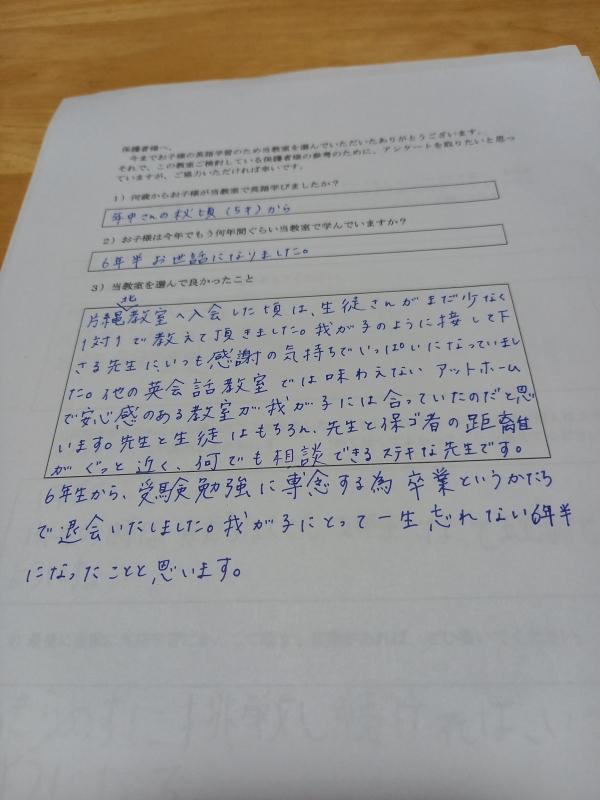 保護者様へ、
今までお子様の英語学習のため当教室を選んでいただいたありがとうございます。
それで、この教室ご検討している保護者様の参考のために、アンケートを取りたいと思っ
ていますが、ご協力いただければ幸いです。
1）何歳からお子様が当教室で英語学びましたか？
年中さんの秋頃（5才）から
2）お子様は今年でもう何年間ぐらい当教室で学んでいますか？
6年半お世話になりました。
3）当教室を選んで良かったこと
北
片縄教室へ入会した頃は、生徒さんがまだ少なく
1対1で教えて頂きました。我が子のように接して下
さる先生にいつも感謝の気持ちでいっぱいになっていまし
た。他の英会話教室では味わえないアットホーム
で安心感のある教室が我が子には合っていたのだと思
います。先生と生徒はもちろん、先生と保ゴ者の距離
がぐっと近く、何でも相談できるステキな先生です。
6年生から、受験勉強に専念する為卒業というかたち
で退会いたしました。我が子にとって一生忘れない6年半
になったことと思います。